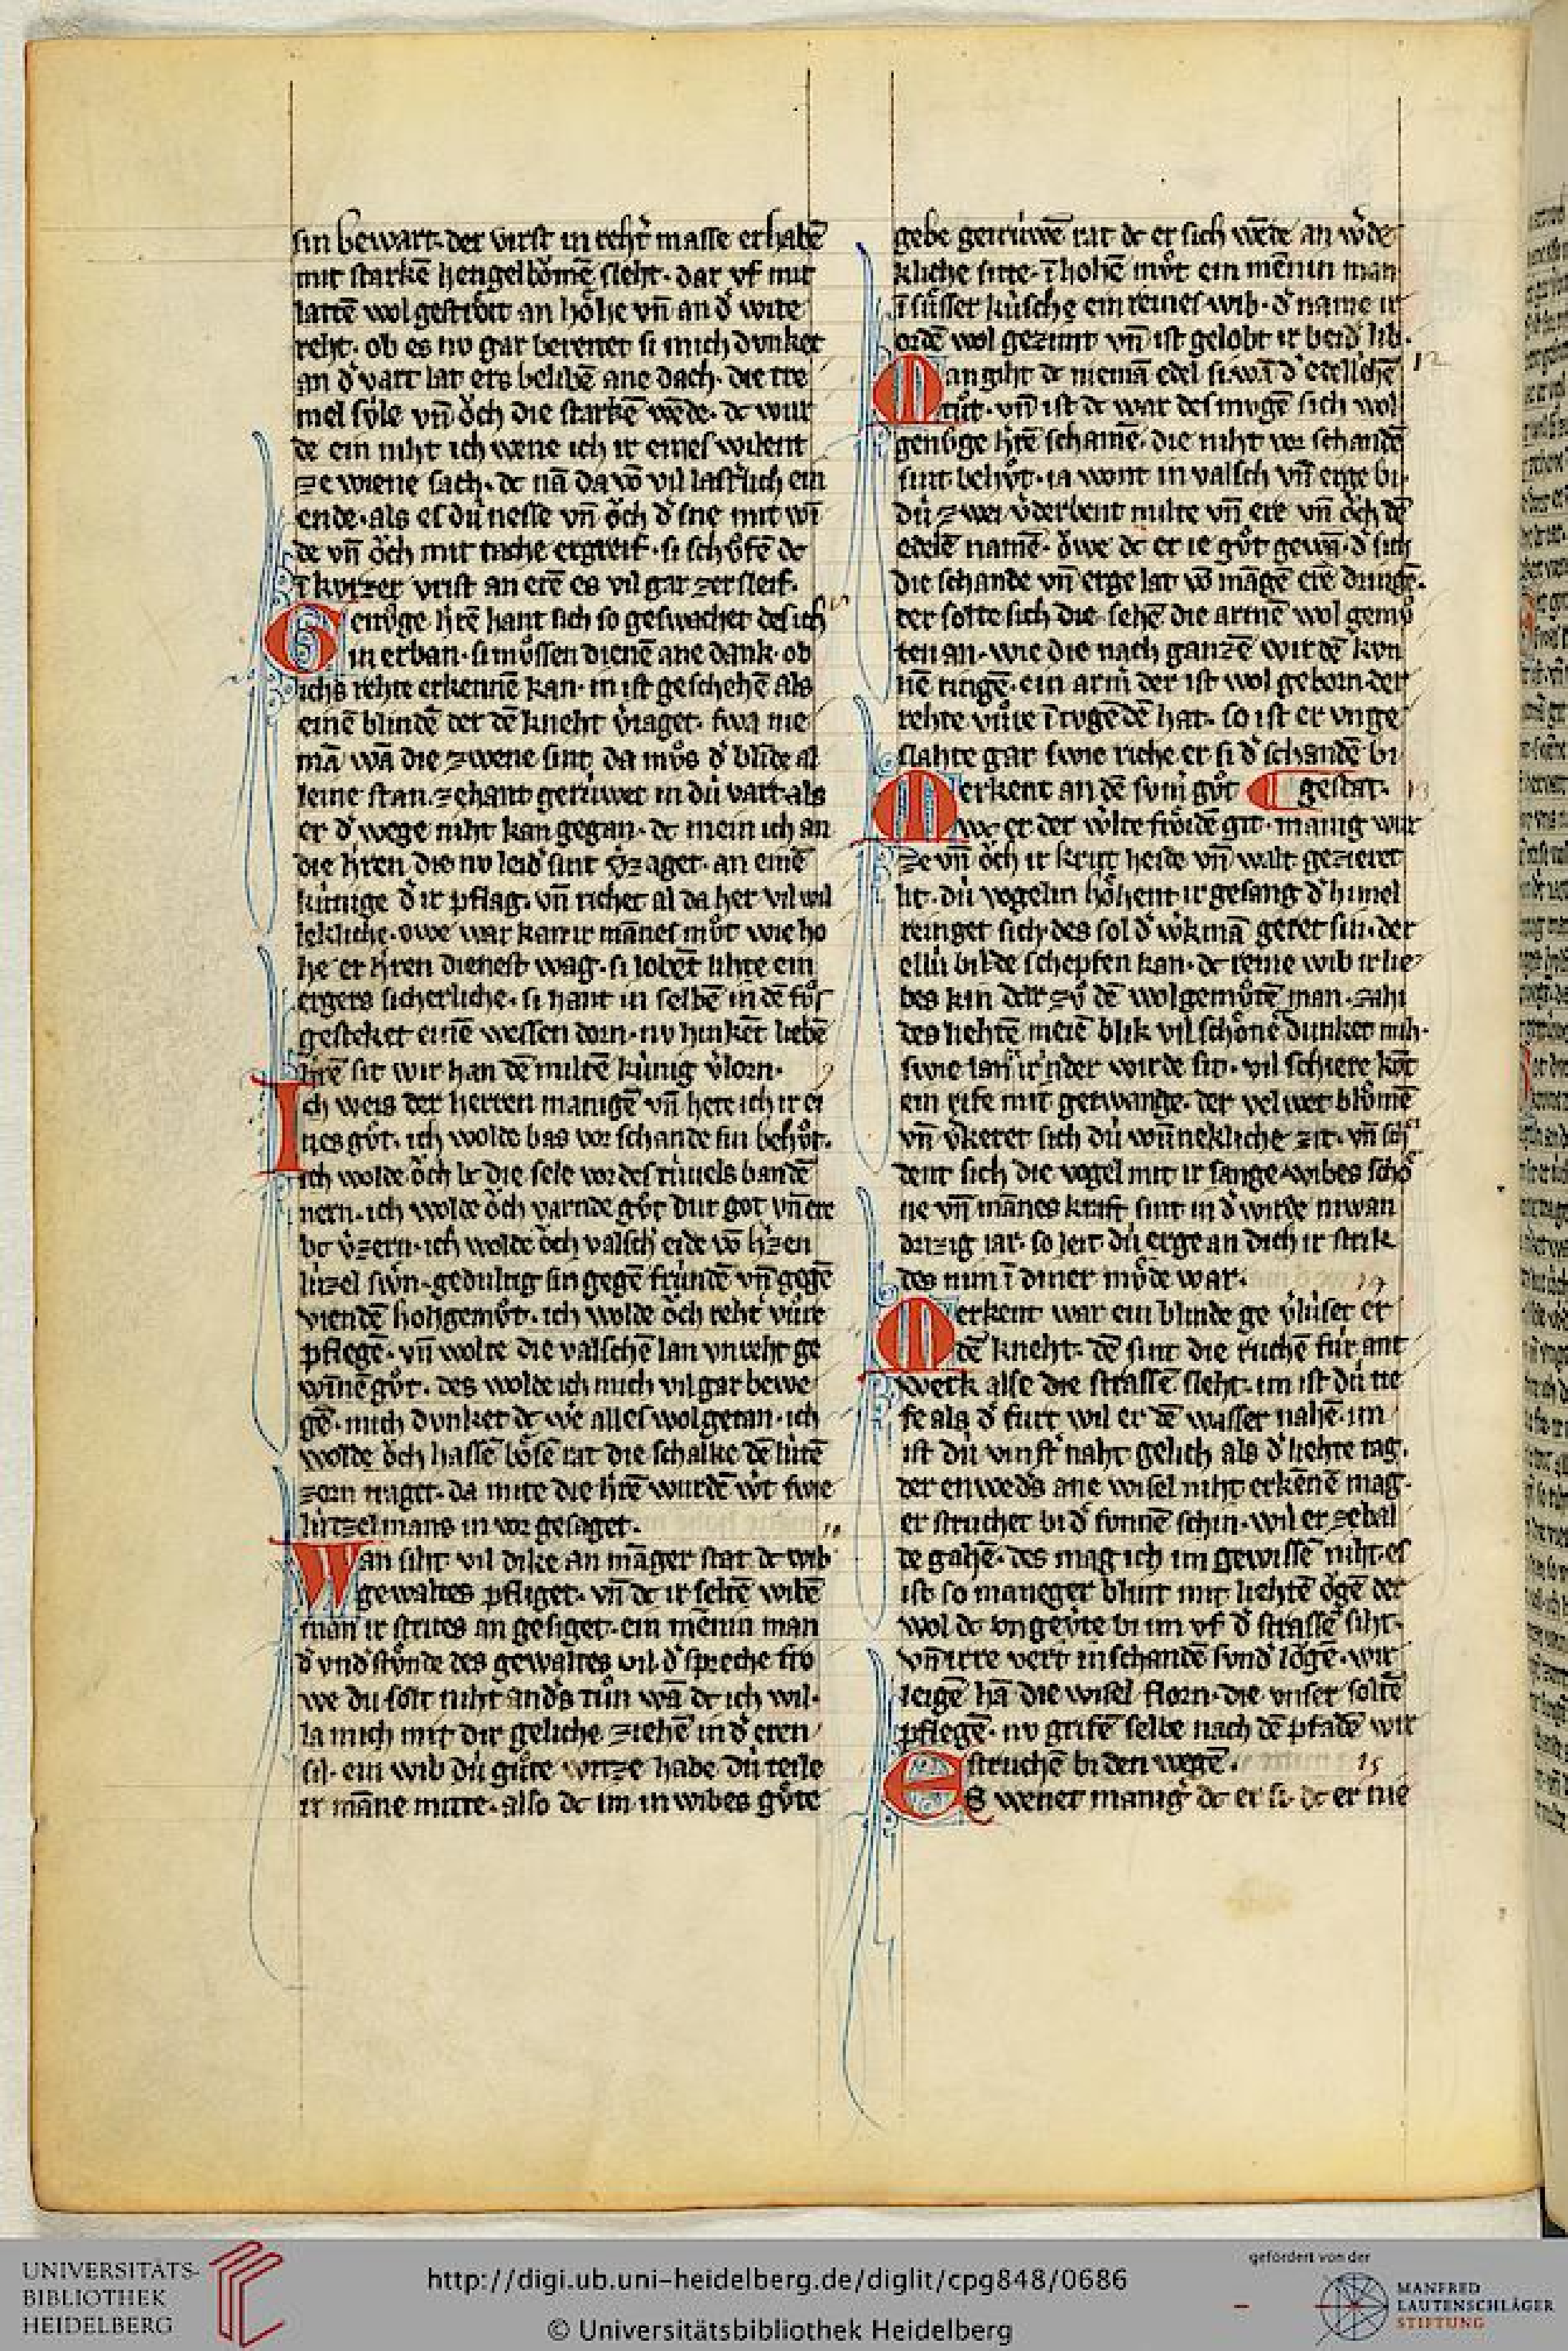 sin bewart. der virst in reht̉ masse erhabē
mit starkē hengelbŏmē sleht. dar vf mit
lattē wol gestrŏit an hŏhe vn̄ an d̉ wite
reht. ob es nv gar bereitet si mich dvnket
an d̉ vart lat ers belibē ane dach. die tre
mel sv̂le vn̄ ŏch die starkē wēde. dc wur
de ein niht ich wene ich ir eines wilent
ze wiene sach. dc nā da vō vil lastˢlich ein
ende. als es dú nesse vn̄ ŏch d̉ sne mit wī
de vn̄ ŏch mit tache ergreif. si schv̊fē dc
ī kvrzer vrist an erē es vil gar zersleif.
Genv̊ge h̉rē hant sich so geswachet des ich
in erban. si mv̊ssen dienē ane dank. ob
ichs rehte erkennē kan. in ist geschehē als
einē blindē der dē kneht v̉raget. swa nie
mā wā die zwene sint da mv̊s d̉ blīde al
leine stan. zehant gerúwet in dú vart. als
er d̉ wege niht kan gegan. dc mein ich an
die h̉ren die nv leid̉ sint v̉zaget. an einē
kúnige d̉ ir pflag. vn̄ richet al da her vil wil
lekliche. owe war kan ir mānes mv̊t wie ho
he er h̉ren dienest wag. si lobēt lihte ein
ergers sicherliche. si hant in selbē in dē fv̊s
gesteket einē wessen dorn. nv hinkēt liebē
h̉rē sit wir han dē miltē kúnig v̉lorn.
Ich weis der herren manigē vn̄ hete ich ir ei
nes gv̊t. ich wolde bas vor schande sin behv̊t.
ich wolde ŏch die sele vor des túuels bandē
nern. ich wolde ŏch varnde gv̊t dur got vn̄ ere
v̉zern. ich wolde ŏch valsch eide vō h̉zen
lúzel swˢn. gedultig sin gegē frúndē vn̄ gegē
viendē hohgemv̊t. ich wolde ŏch reht̉ vv̊re
pflegē. vn̄ wolte die valschē lan vnreht ge
winnē gv̊t. des wolde ich mich vil gar bewe
gē. mich dvnket dc we alles wolgetan. ich
wolde ŏch hassē bŏsē rat die schalke dē lútē
zorn traget. da mitte die h̉rē wurdē w̉t swie
lútzel mans in vor gesaget.
Wan siht vil dike an māger stat dc wib
gewaltes pfliget. vn̄ dc ir seltē wibē
man ir strites an gesiget. ein mēnin man
d̉ vnd̉stv̊nde des gewaltes vil. d̉ spreche fro
we du solt niht and̉s tv̊n wā dc ich wil.
la mich mit dir geliche ziehē in d̉ eren
sil. ein wib dú gv̊te witze habe dú teile
ir māne mitte. also dc im in wibes gv̊te
gebe getrúwē rat dc er sich wēde an w̉de
kliche sitte. ī hohē mv̊t ein mēnin man
ī sv̊sser kúsche ein reines wib. d̉ name ir
ordē wol gezimt vn̄ ist gelobt ir beid̉ lib.
Man giht dc niemā edel si wā d̉ edellichē
tv̊t. vn̄ ist dc war des mvgē sich wol
genv̊ge h̉rē schamē. die niht vor schandē
sint behv̊t. ia wont in valsch vn̄ erge bi.
dú zwei v̉derbent milte vn̄ ere vn̄ ŏch dē
edelē namē. ŏwe dc er ie gv̊t gewā. d̉ sich
die schande vn̄ erge lat vō māgē erē dringē.
der solte sich die sehē die armē wol gemv̊
ten an. wie die nach ganzē wirdē kvn
nē ringē. ein arm̉ der ist wol geborn der
rehte vv̊re ī tvgendē hat. so ist er vnge
slahte gar swie riche er si d̉ schandē bi
gestat.
Merkent an dē svm̉ gv̊t
wc er der w̉lte frŏidē git. manig wur
ze vn̄ ŏch ir krut heide vn̄ walt gezieret
lit. dú vogelin hŏhent ir gesang d̉ himel
reinget sich. des sol d̉ w̉kmā geret sin. der
ellú bilde schepfen kan. dc reine wib ir lie
bes kin dar zv̊ dē wolgemv̊tē man. zahi
des liehtē meiē blik vil schŏne dunket mih.
swie lang ir in der wirde sit. vil schiere kōt
ein rife mit getwange. der velwet blv̊mē
vn̄ v̉keret sich dú wūnekliche zit. vn̄ schˢ
dent sich die vogel mit ir sange. wibes schŏ
ne vn̄ mānes kraft sint in d̉ wirde niwan
drizig iar. so leit dú erge an dich ir strik
des nim ī diner mv̊de war.
Merkent war ein blinde ge v̉lúset er
dē kneht. dē sint die ruchē fúr ant
werk alse die strassē sleht. im ist dú tie
fe als d̉ furt wil er dē wasser nahē. im
ist dú vinst̉ naht gelich als d̉ liehte tag.
der enwed̉s ane wisel niht erkēnē mag.
er struchet bi d̉ sonnē schin. wil er zebal
de gahē. des mag ich im gewissē niht. es
ist so maneger blint mit liehtē ŏgē der
wol dc vngeverte bi im vf d̉ strassē siht.
vn̄ irre vert in schandē svnd̉ lŏgē. wir
leigē hā die wisel florn. die vnser soltē
pflegē. nv grifē selbe nach dē pfadē wir
struchē bi den wegē.
Es wenet manig̉ dc er si. dc er nie
12
13
10
14
15
UNIVERSITÄTS-
BIBLIOTHEK
HEIDELBERG
http://digi.ub.uni-heidelberg.de/diglit/cpg848/0686
© Universitätsbibliothek Heidelberg
gefördert von der
MANFRED
LAUTENSCHLÄGER
STIFTUNG